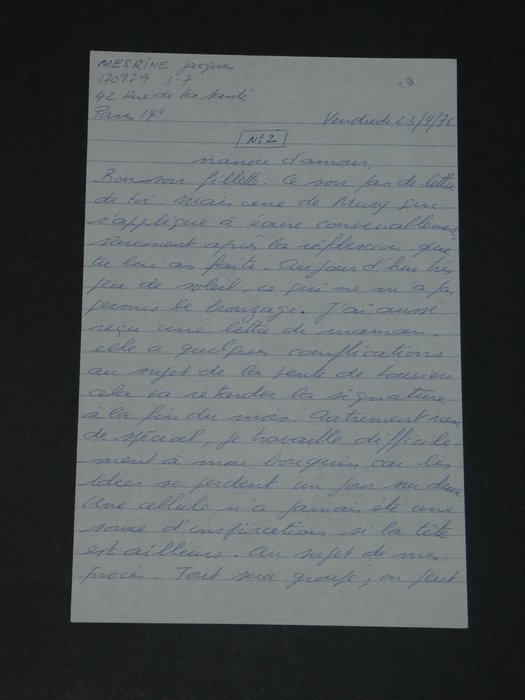 MESRINE Jacques
170979 3-7
42 Rue de la Santé
Paris 14e
Vendredi 23/4/76
N=2
nanou d'amour
Bonsoir fillette. Ce soir pas de lettre
de toi. mais une de Mury qui
s'applique à écrire convenablement,
sûrement après la réflexion que
tu lui as faite. Aujourd'hui très
peu de soleil, ce qui ne m'a pas
permis le bronzage. J'ai aussi
reçu une lettre de maman
elle a quelques complications
au sujet de la vente de Louviers
cela va retarder la signature
à la fin du mois. Autrement rien
de spécial, je travaille difficile
ment à mon bouquin car les
idées se perdent un jour sur deux
Une cellule n'a jamais été une
source d'inspiration si la tête
est ailleurs. Au sujet de mes
procès. Tout sera groupé; on peut